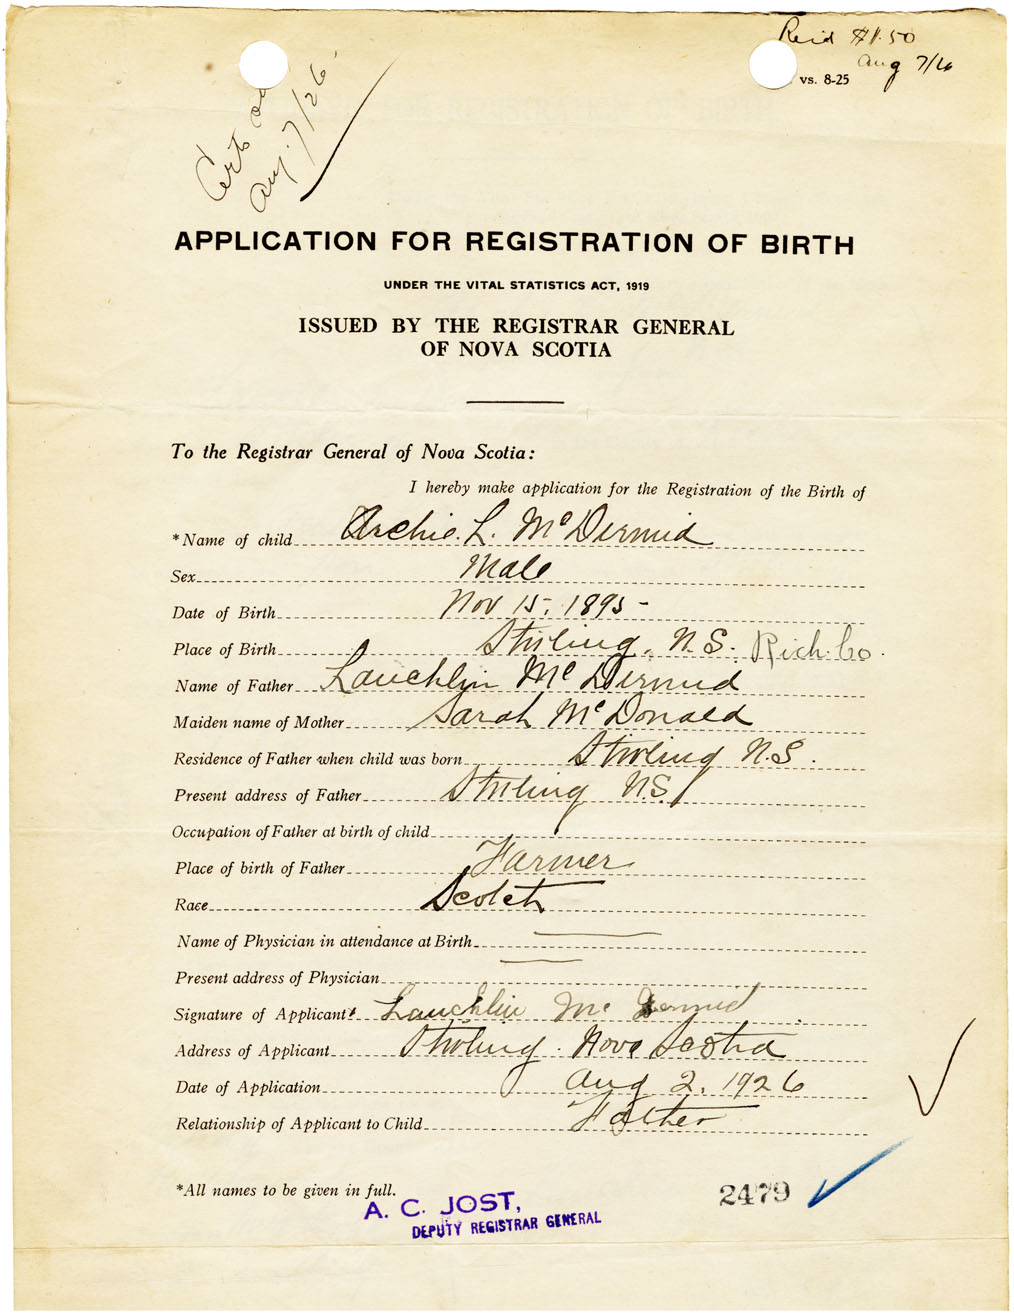 Reid $1.50
Aug 7/26
vs. 8-25
Certs
Aug. 7/26.
APPLICATION FOR REGISTRATION OF BIRTH
UNDER THE VITAL STATISTICS ACT, 1919
ISSUED BY THE REGISTRAR GENERAL
OF NOVA SCOTIA
To the Registrar General of Nova Scotia:
I hereby make application for the Registration of the Birth of
*Name of child Archie. L. McDermid
Sex Male
Date of Birth Nov 15, 1895 -
Place of Birth Stirling, N.S. Rich. Co.
Name of Father Lauchlin McDermid
Maiden name of Mother Sarah McDonald
Residence of Father when child was born Stirling N.S.
Present address of Father Stirling N.S.
Occupation of Father at birth of child
Place of birth of Father Farmer
Race Scotch
Name of Physician in attendance at Birth
Present address of Physician
Signature of Applicant Lauchlin McDermid
Address of Applicant Stirling. Nova Scotia
Date of Application Aug 2, 1926
Relationship of Applicant to Child Father
*All names to be given in full.
2479
A. C. JOST,
DEPUTY REGISTRAR GENERAL